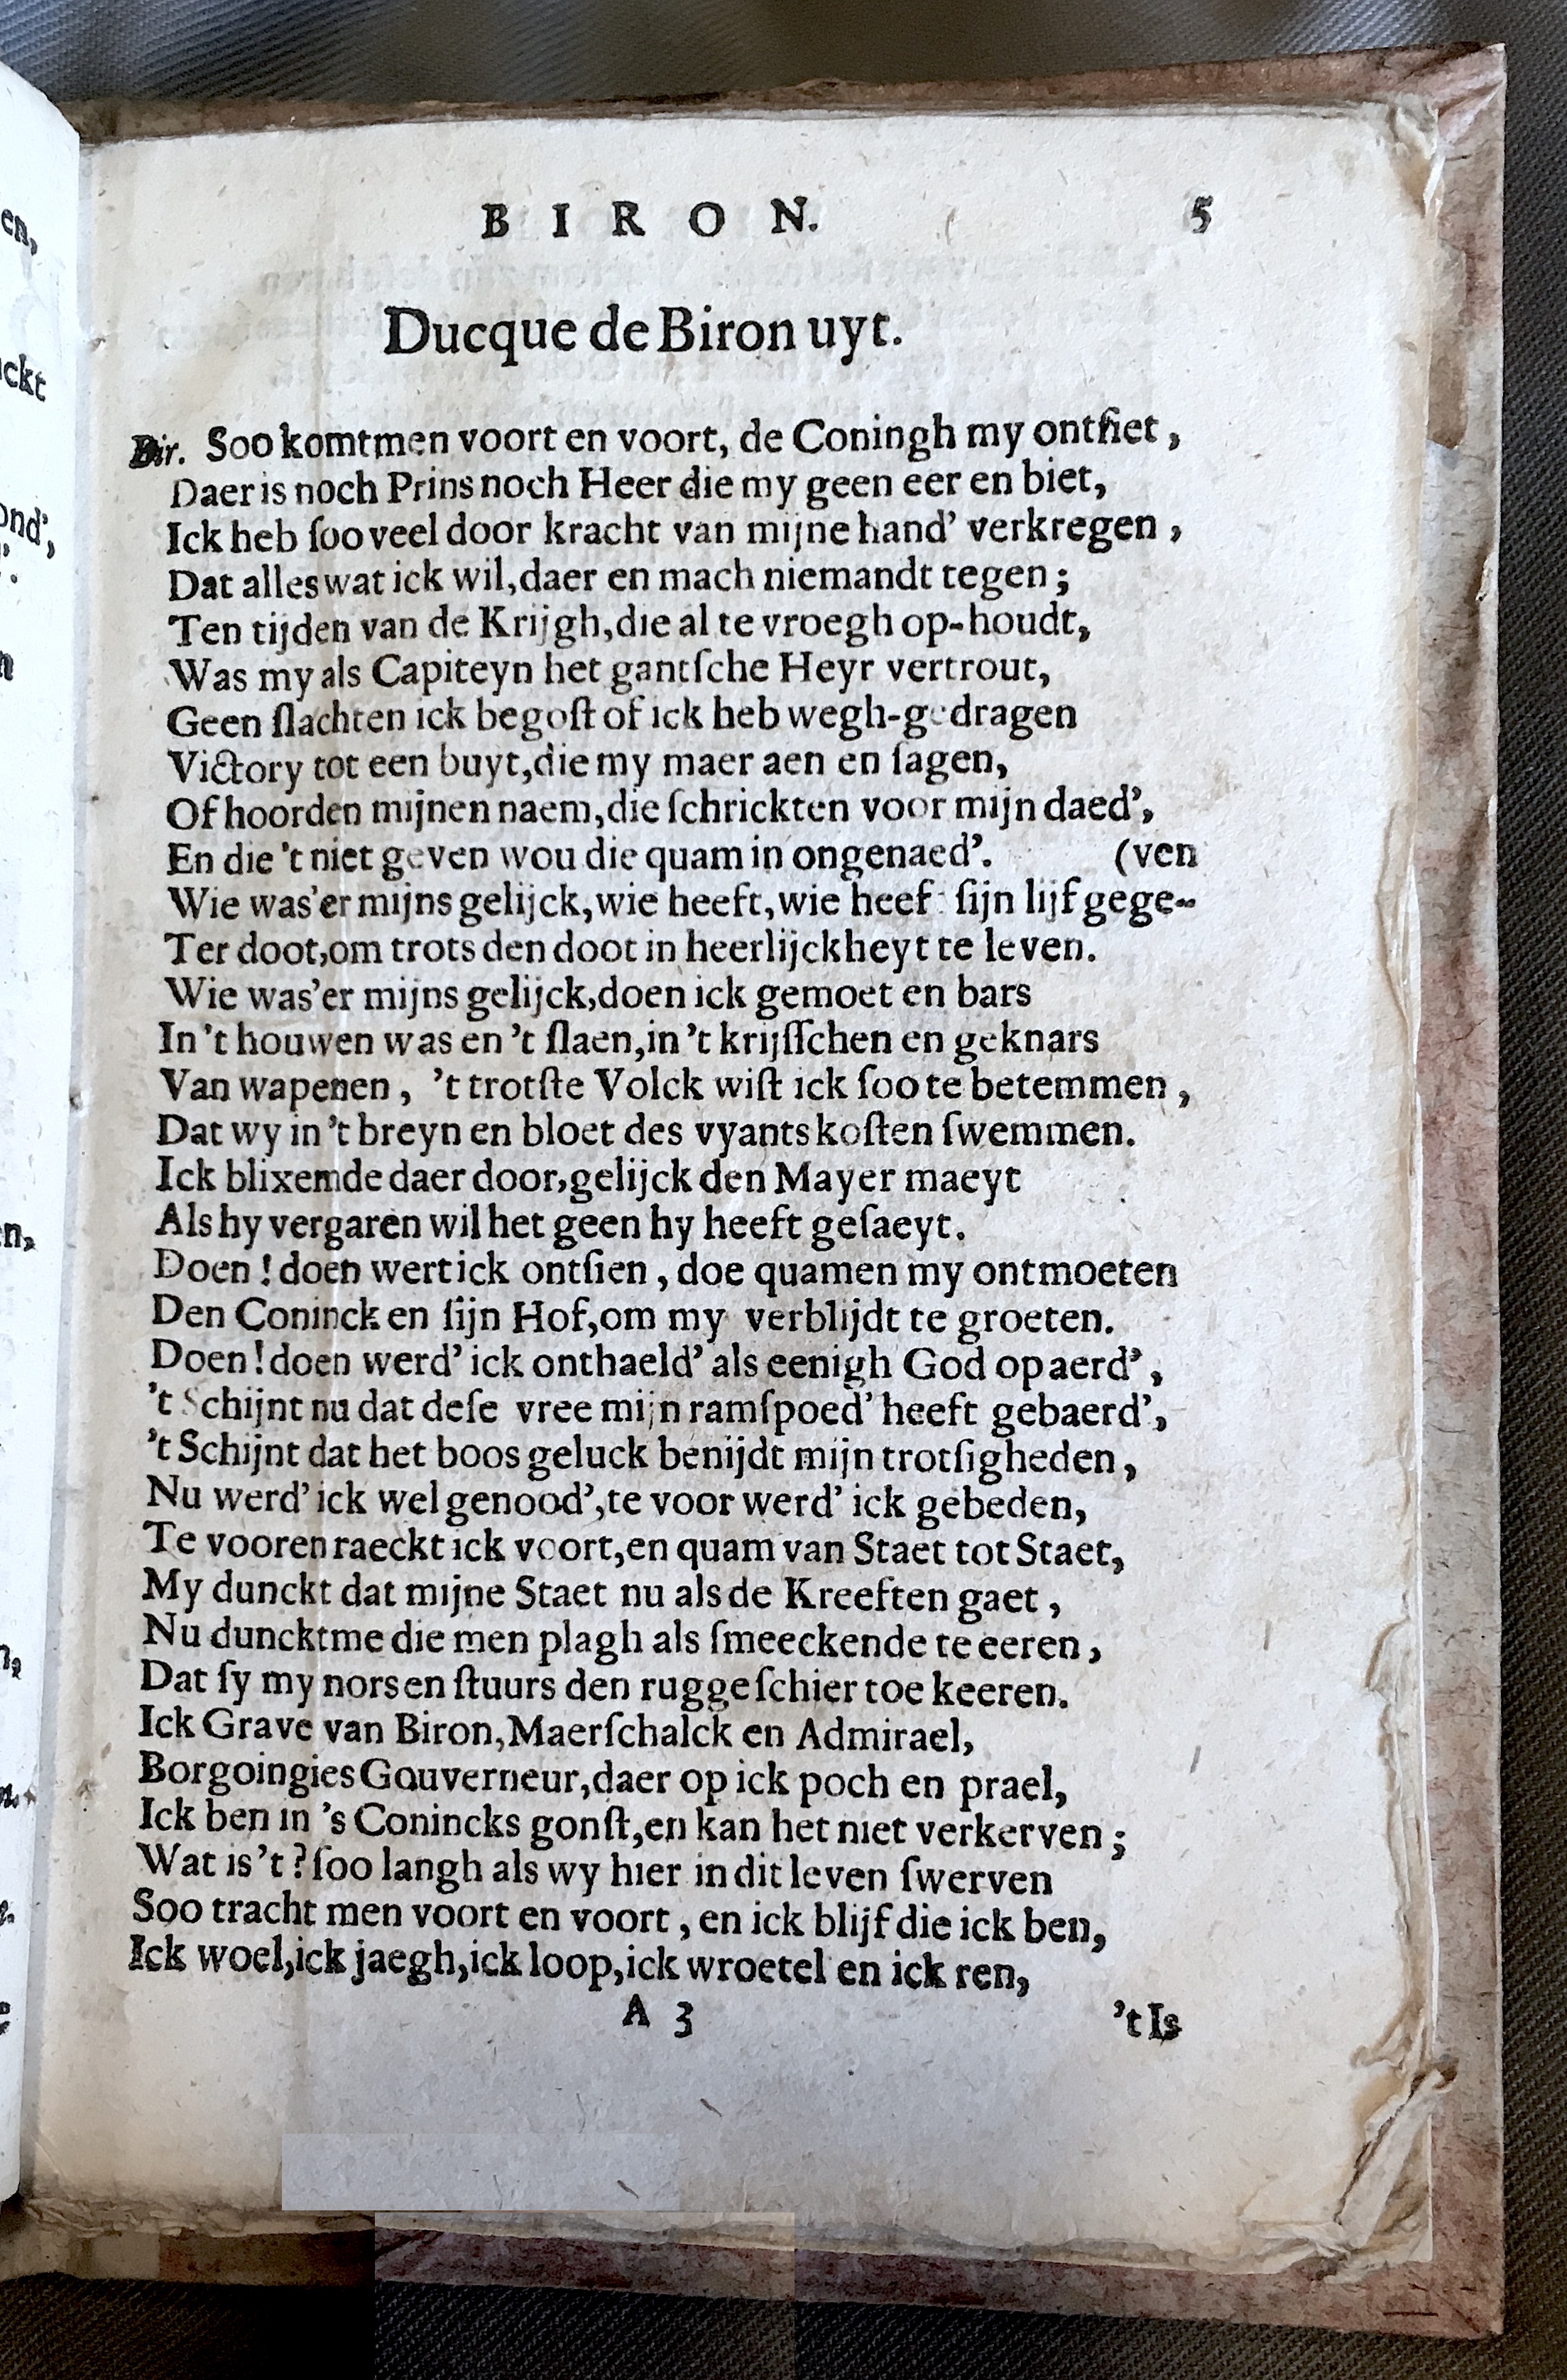 BIRON. 5
Ducque de Biron uyt.
Bir. Soo komtmen voort en voort, de Coningh my ontſiet,
Daer is noch Prins noch Heer die my geen eer en biet,
Ick heb ſoo veel door kracht van mijne hand' verkregen,
Dat alles wat ick wil, daer en mach niemandt tegen;
Ten tijden van de Krijgh, die al te vroegh op-houdt,
Was my als Capiteyn het gantſche Heyr vertrout,
Geen ſlachten ick begoſt of ick heb wegh-gedragen
Victory tot een buyt, die my maer aen en ſagen,
Of hoorden mijnen naem, die ſchrickten voor mijn daed',
En die 't niet geven wou die quam in ongenaed'. (ven
Wie was'er mijns gelijck, wie heeft, wie heeft ſijn lijf gege-
Ter doot, om trots den doot in heerlijckheyt te leven.
Wie was'er mijns gelijck, doen ick gemoet en bars
In 't houwen was en 't ſlaen, in 't krijſſchen en geknars
Van wapenen, 't trotſte Volck wiſt ick ſoo te betemmen,
Dat wy in 't breyn en bloet des vyants koſten ſwemmen.
Ick blixemde daer door, gelijck den Mayer maeyt
Als hy vergaren wil het geen hy heeft geſaeyt.
Doen! doen wert ick ontſien, doe quamen my ontmoeten
Den Coninck en ſijn Hof, om my verblijdt te groeten.
Doen! doen werd' ick onthaeld' als eenigh God op aerd',
't Schijnt nu dat deſe vree mijn ramſpoed' heeft gebaerd',
't Schijnt dat het boos geluck benijdt mijn trotſigheden,
Nu werd' ick wel genood', te voor werd' ick gebeden,
Te vooren raeckt ick voort, en quam van Staet tot Staet,
My dunckt dat mijne Staet nu als de Kreeften gaet,
Nu duncktme die men plagh als ſmeeckende te eeren,
Dat ſy my nors en ſtuurs den rugge ſchier toe keeren.
Ick Grave van Biron, Maerſchalck en Admirael,
Borgoingies Gouverneur, daer op ick poch en prael,
Ick ben in 's Conincks gonſt, en kan het niet verkerven;
Wat is 't? ſoo langh als wy hier in dit leven ſwerven
Soo tracht men voort en voort, en ick blijf die ick ben,
Ick woel, ick jaegh, ick loop, ick wroetel en ick ren,
A 3 't Is